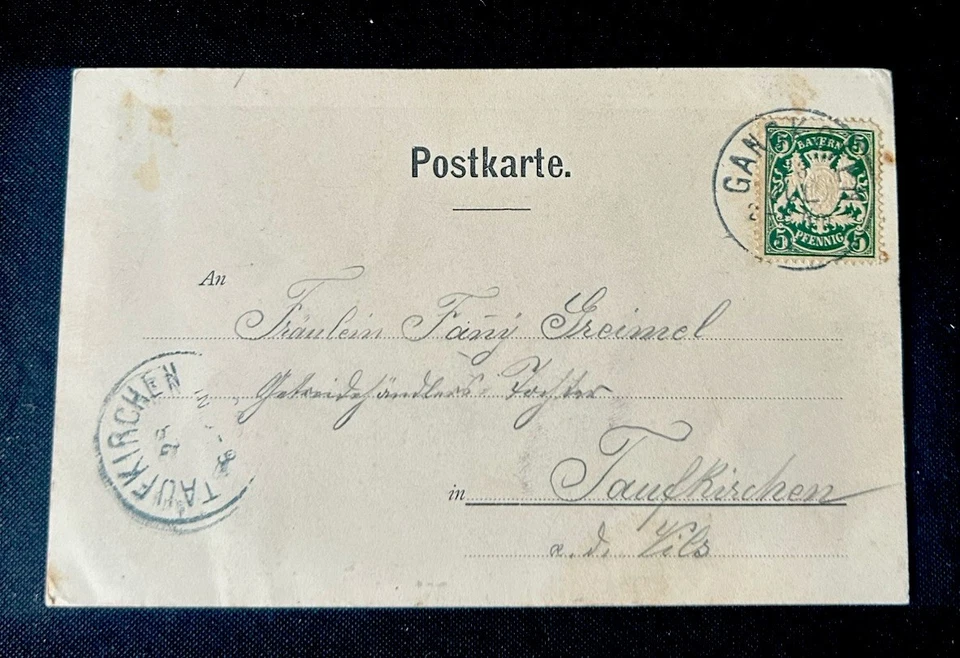 Postkarte.
5 BAYERN 5
5 PFENNIG 5
An
Fräulein Fañy Greimel
Getreidehändlers-Tochter
TAUFKIRCHEN
in Taufkirchen
a. d. Vils